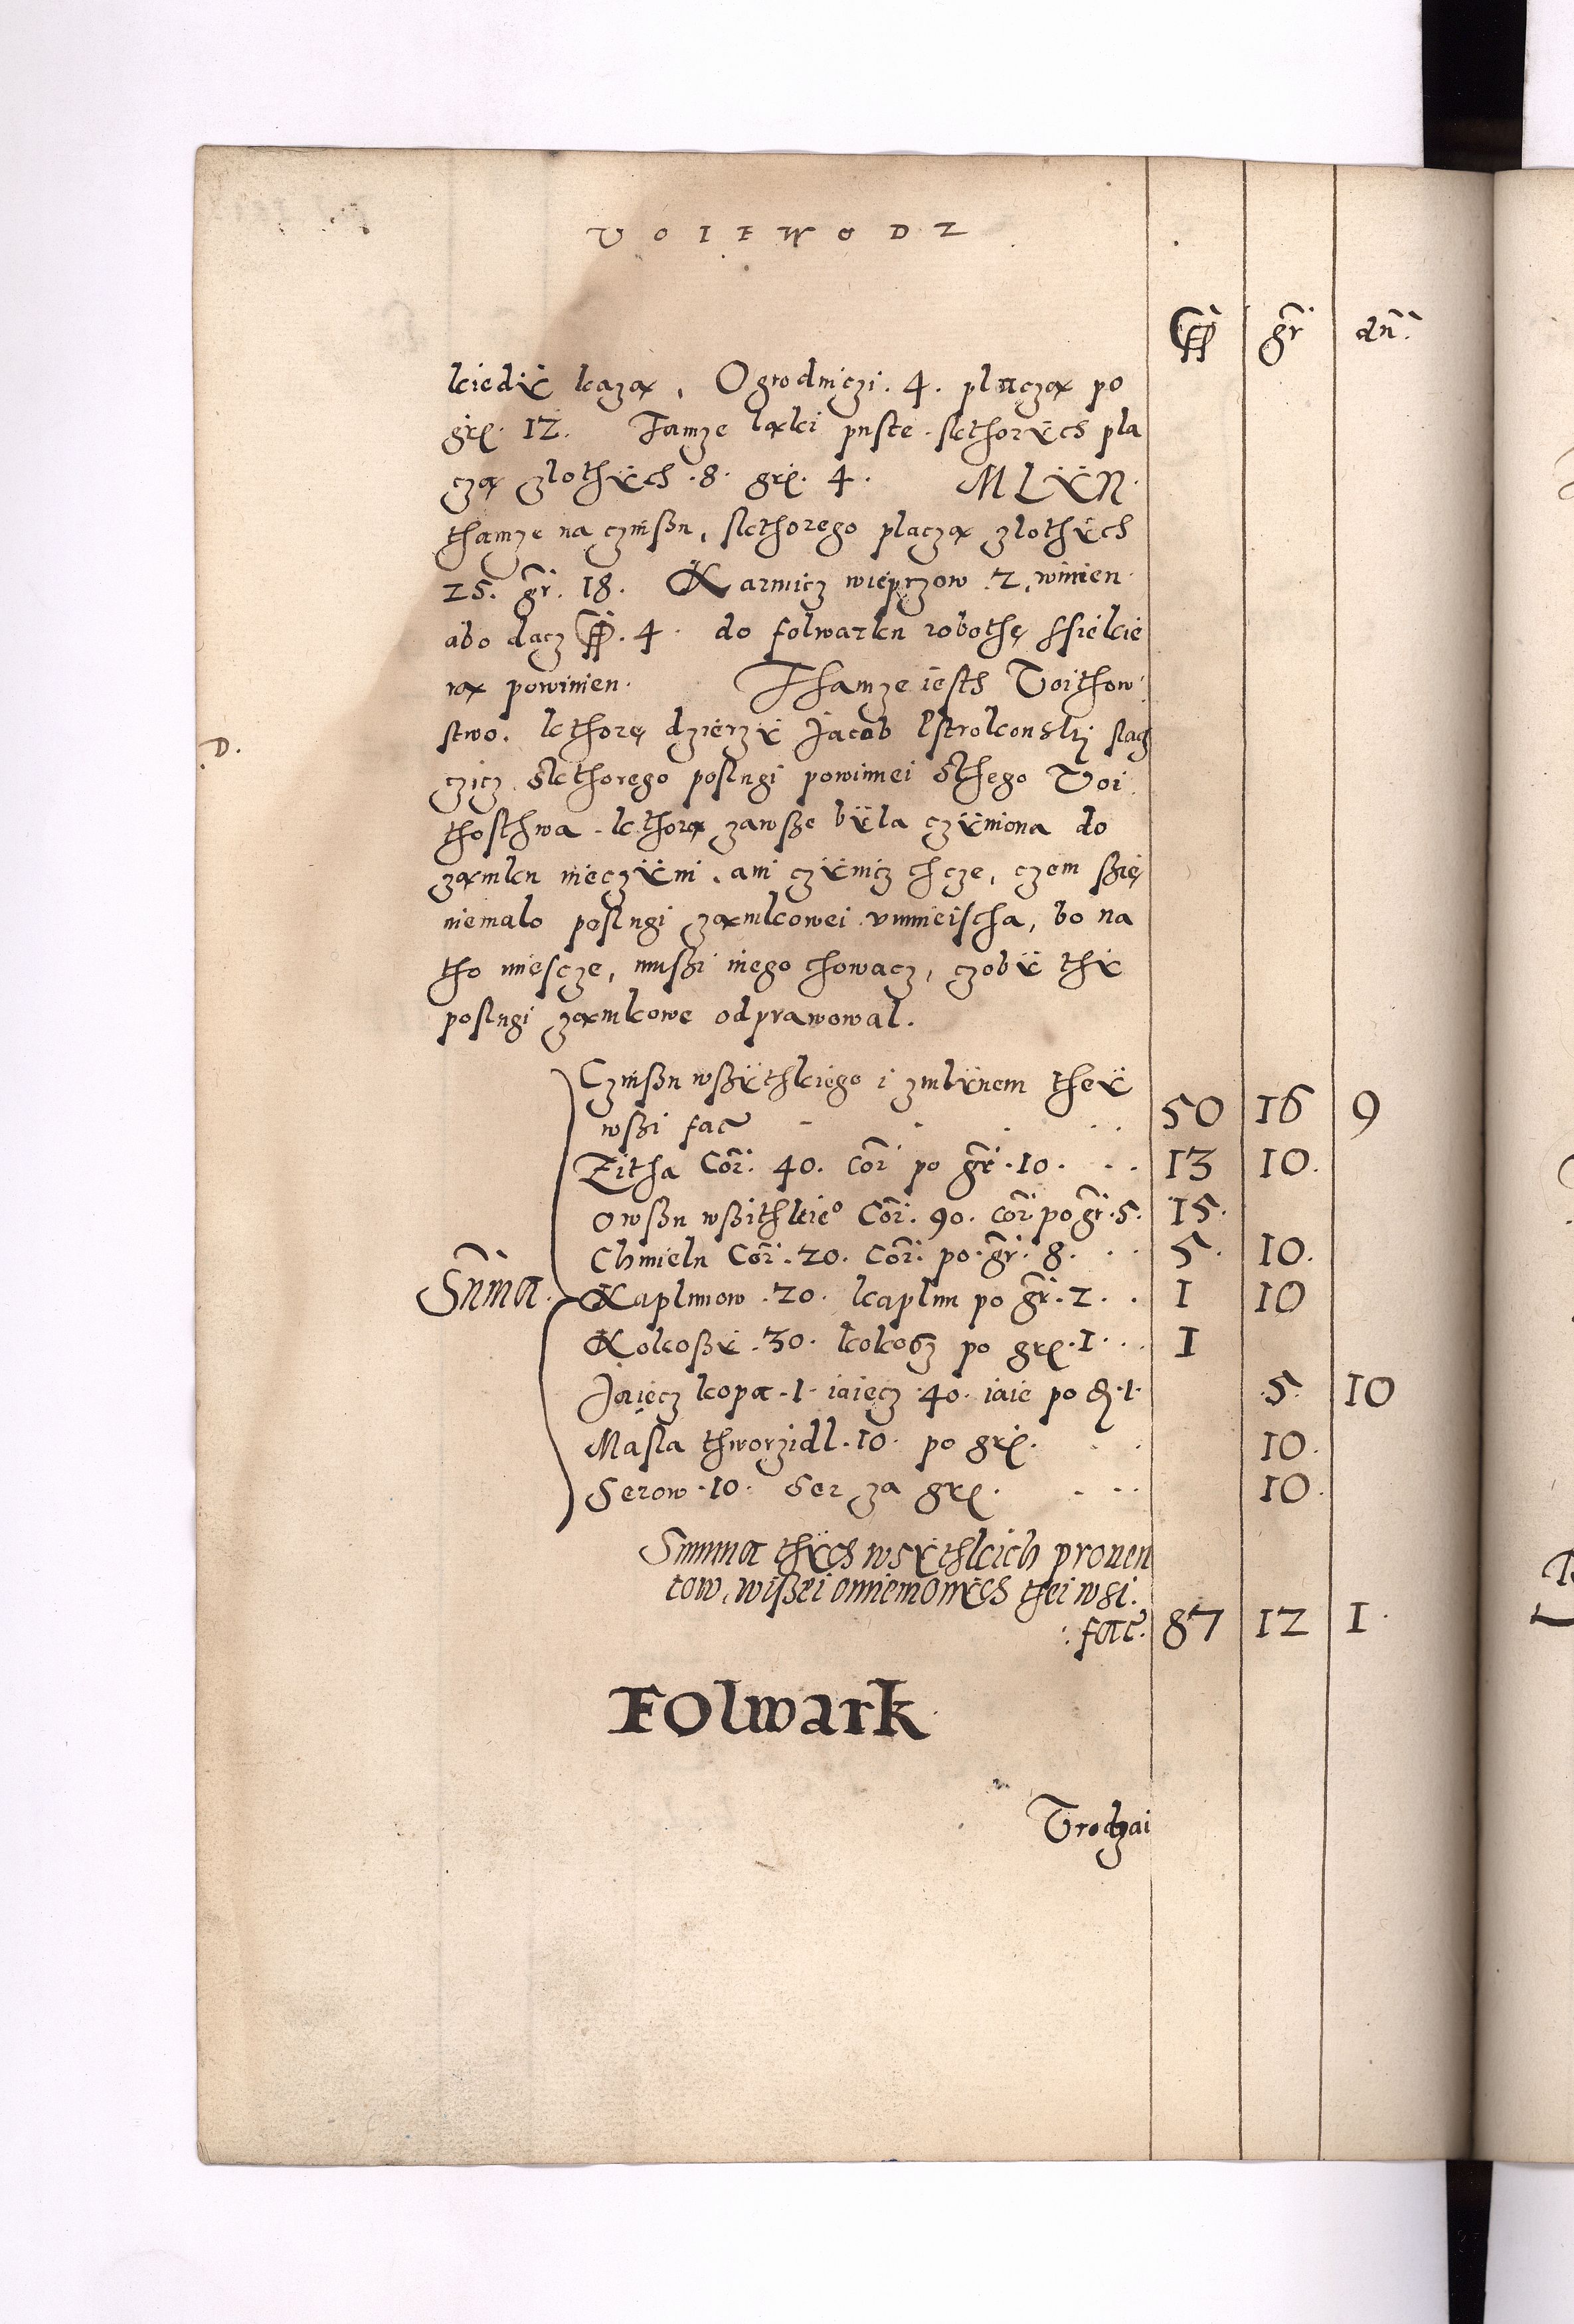 VOIEWODZ
fl. gr. dn.
kiedÿ kazą, Ogrodniczi .4. płaczą po
grͯ. 12. Tamze ląki puste. sktorÿch pla
czą zlothÿch .8. grͯ. 4. MLÿN.
thamze na czinßu, skthorego placzą zlothÿch
25. gr. 18. Karmicz wieprzow .2. winien
abo dacz fl. 4. do folwarku robothę ssiekie
rą powinien. Thamze iesth Voithow
stwo. kthorę dzierzÿ Jacob Ostrolconski
D.
czicz. skthorego poslugi powinnei sthego Voi
thosthwa. kthorą zawsze bÿla czÿniona do
zamku nieczÿni. ani czÿnicz chcze, czem ßię
niemalo poslugi zamkowei vmnieischa, bo na
tho miescze, mußi inego chowacz, czobÿ thÿ
poslugi zamkowe odprawowal.
Czinßu wßÿthkiego i zmlÿnem theÿ
wßi fac. 50 16 9
Zitha Cor. 40. cor po gr. 10. 13 10.
Owßu wßithkieo Cor. 90. cor. po gr. 5. 15.
Chmielu Cor. 20. Cor. po gr. 8. 5. 10.
Suma. Kaplunow .20. kaplun po gr. 2. 1 10
Kokoßÿ .30. kokosz po grͯ. 1. 1
Jaiecz kopa .1. iaiecz 40. iaie po d. 1. 5. 10
Masla thworzidl. 10. po grͯ. 10.
Serow .10. Ser za grͯ. 10.
Summa thÿch wsÿthkich prouen
tow, wißei omiemonÿch thei wsi.
fac. 87 12 1.
Folwark
Vrodzai